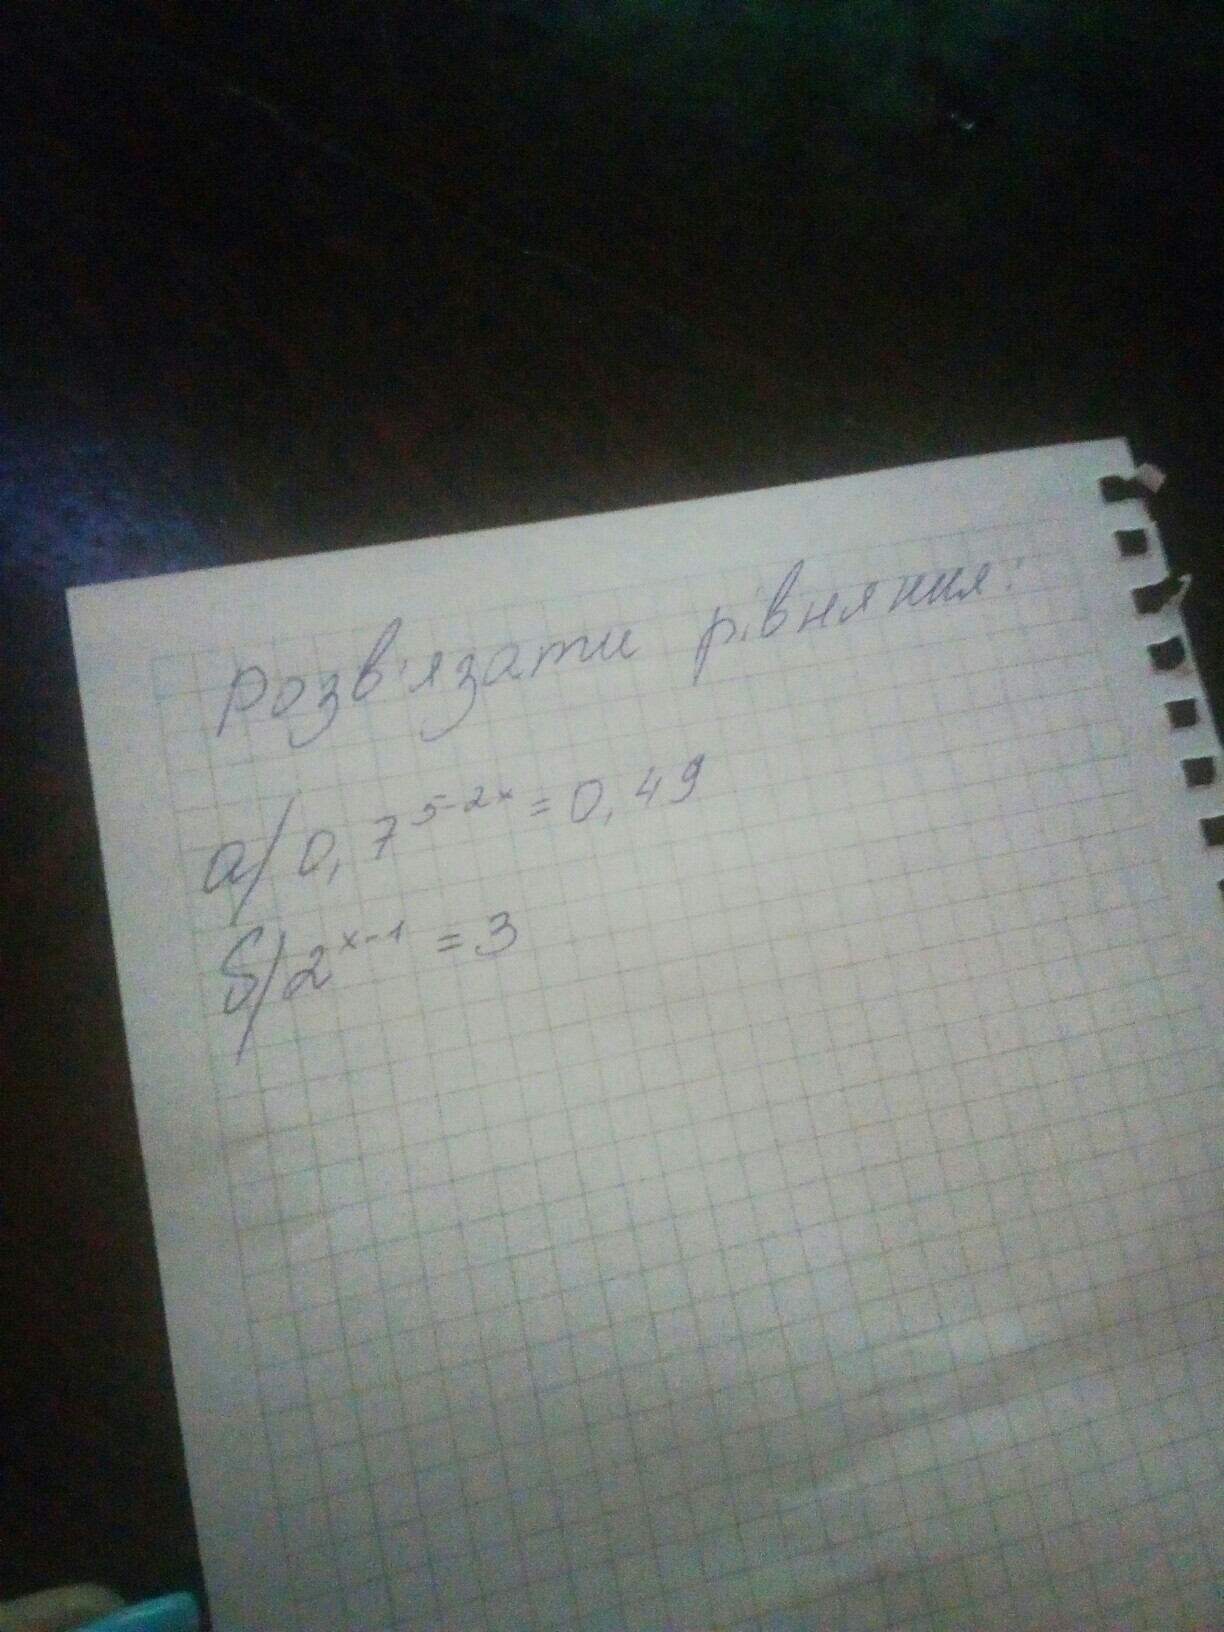 Розв'язати рівняння:
а/ 0,7^5-2x = 0,49
б/ 2^x-1 = 3